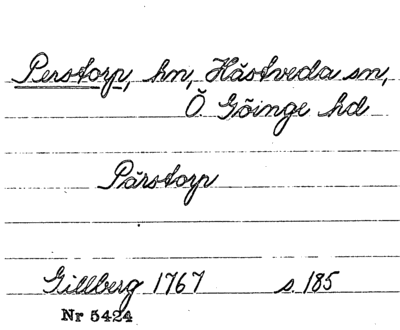 Perstorp, hn, Hästveda sn,
Ö. Göinge hd
Pärstorp
Gillberg 1767 s. 185
Nr 5424